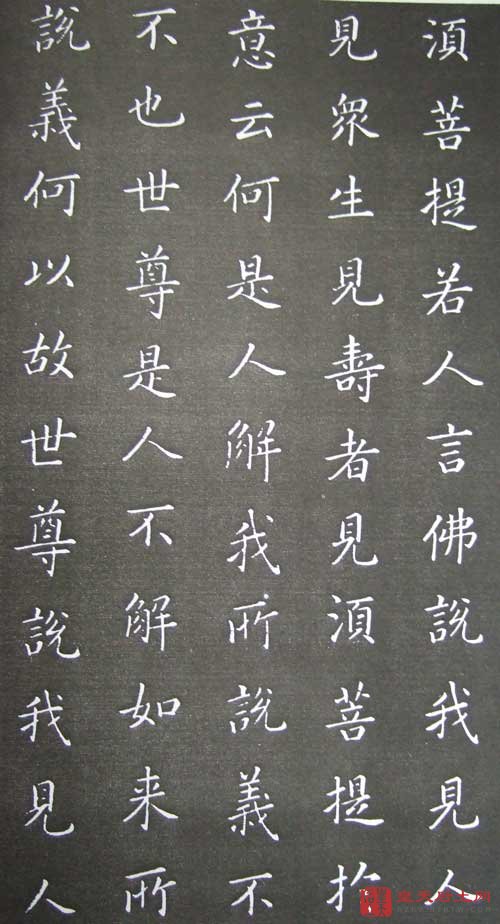 湏菩提若人言佛說我見人
見衆生見壽者見湏菩提扵
意云何是人解我所說義不
不也世尊是人不解如来所
說義何以故世尊說我見人